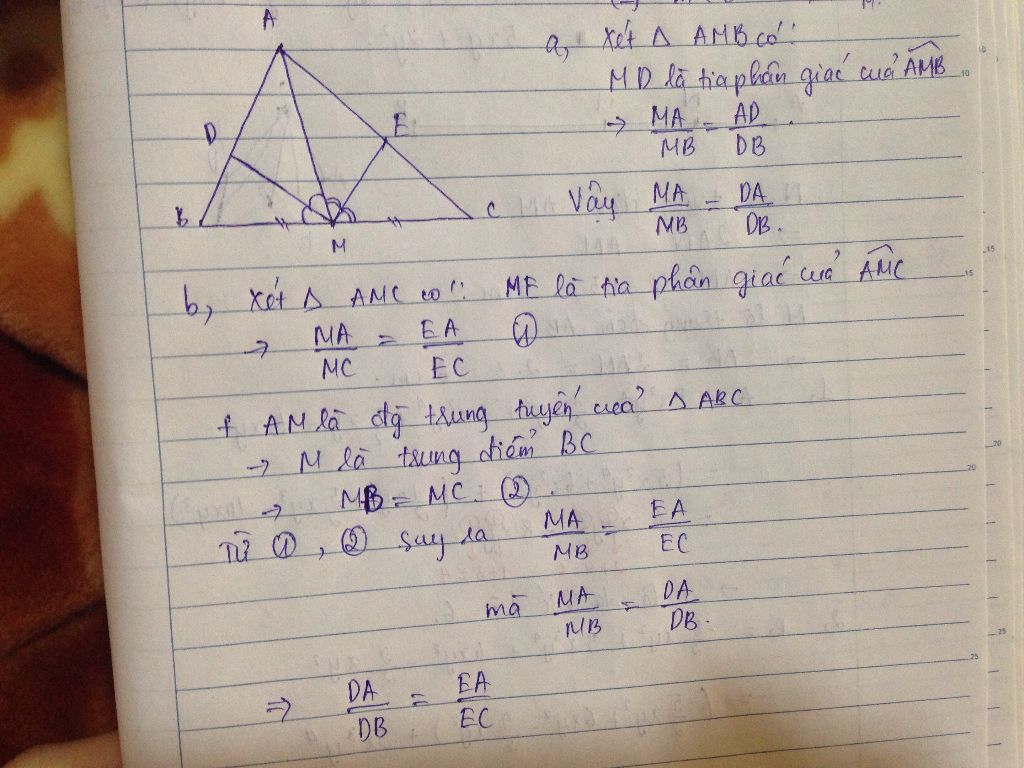 A
D
E
B
C
M
a, Xét Δ AMB có:
MD là tia phân giác cuả \widehat{AMB}
→ MA/MB = AD/DB.
Vậy MA/MB = DA/DB.
b, Xét Δ AMC có: ME là tia phân giác cuả \widehat{AMC}
→ MA/MC = EA/EC ①
+ AM là đg trung tuyến cuả Δ ABC
→ M là trung điểm BC
→ MB = MC. ②.
Từ ①, ② suy ra MA/MB = EA/EC
mà MA/MB = DA/DB.
⇒ DA/DB = EA/EC